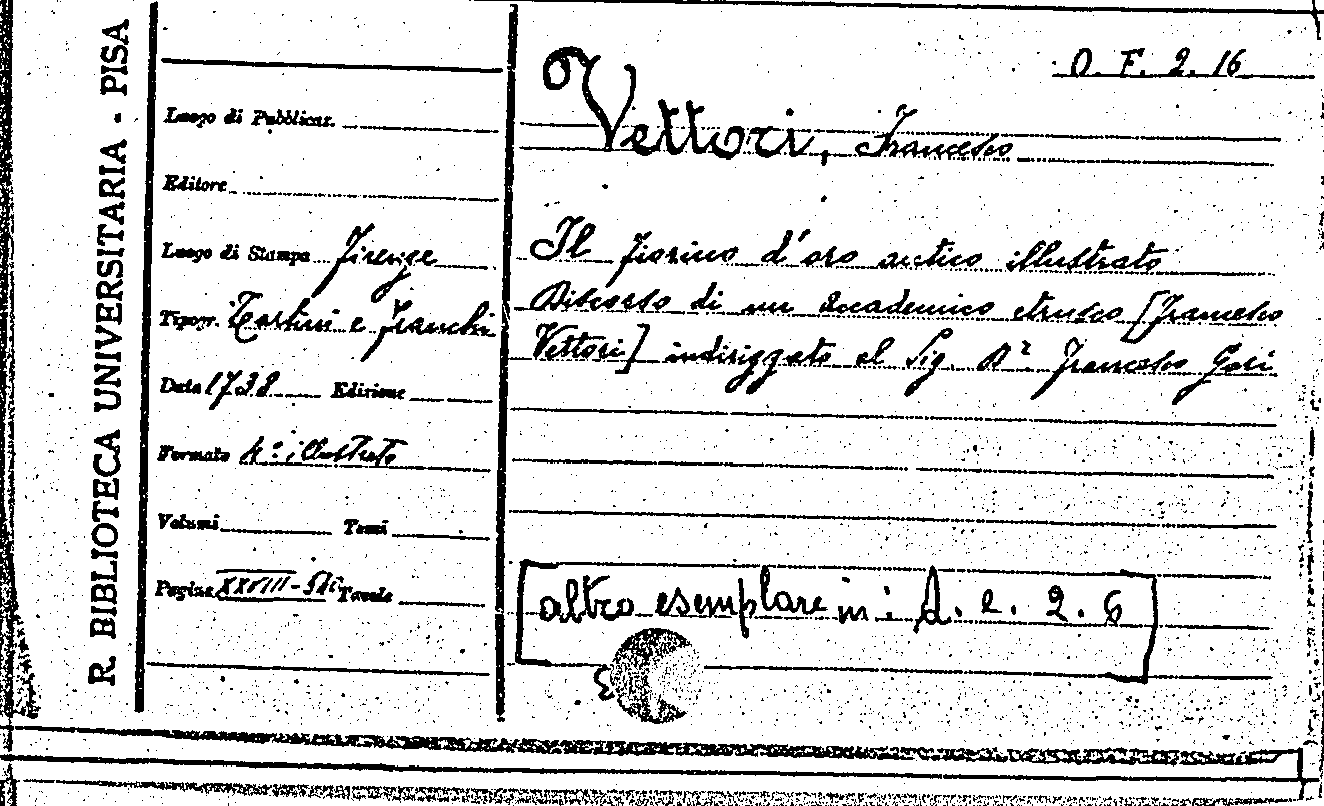 R. BIBLIOTECA UNIVERSITARIA - PISA
O. F. 2. 16
Vettori, Francesco
Luogo di Pubblicaz.
Editore
Luogo di Stampa Firenze
Tipogr. Tartini e Franchi
Data 1738 Edizione
Formato 4º illustrato
Volumi Tomi
Pagine XXVIII- Tavole
Il fiorino d'oro antico illustrato
Discorso di un accademico etrusco [Francesco
Vettori] indirizzato al Sig. Francesco Gori
altro esemplare in: A. e. 2. 6